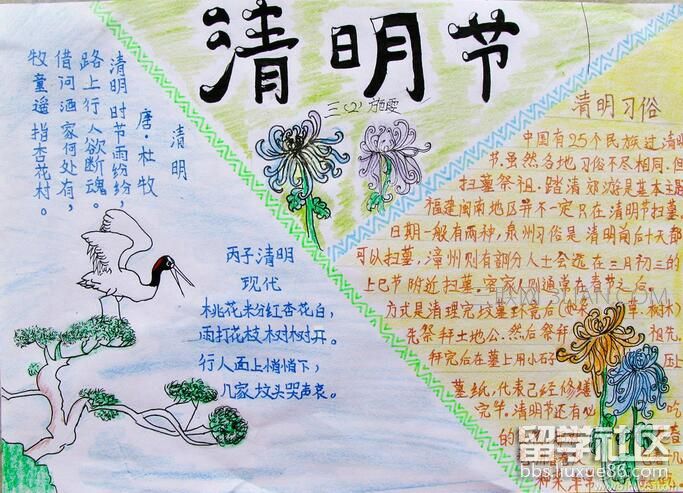 清明节
三(2) 施雯
清明
唐·杜牧
清明时节雨纷纷,
路上行人欲断魂。
借问酒家何处有,
牧童遥指杏花村。
丙子清明
现代
桃花粉红杏花白,
雨打花枝树树开。
行人面上悄悄下,
几家坟头哭声哀。
清明习俗
中国有25个民族过清明
节。虽然各地习俗不尽相同,但
扫墓祭祖、踏清郊游是基本主
福建闽南地区并不一定只在清明节扫墓,
日期一般有两种,泉州习俗是清明前后十天都
可以扫墓。漳州则有部分人士会选在三月初三的
上巳节附近扫墓。客家人则通常在春节之后。
方式是清理完坟墓环境后(如 草、树木)
先祭拜土地公,然后祭拜 祖先。
拜完后在墓上用小石 压上
墓纸,代表已经修缮
完毕。清明节还有 吃
的
留学社区
bbs.liuxue86.com